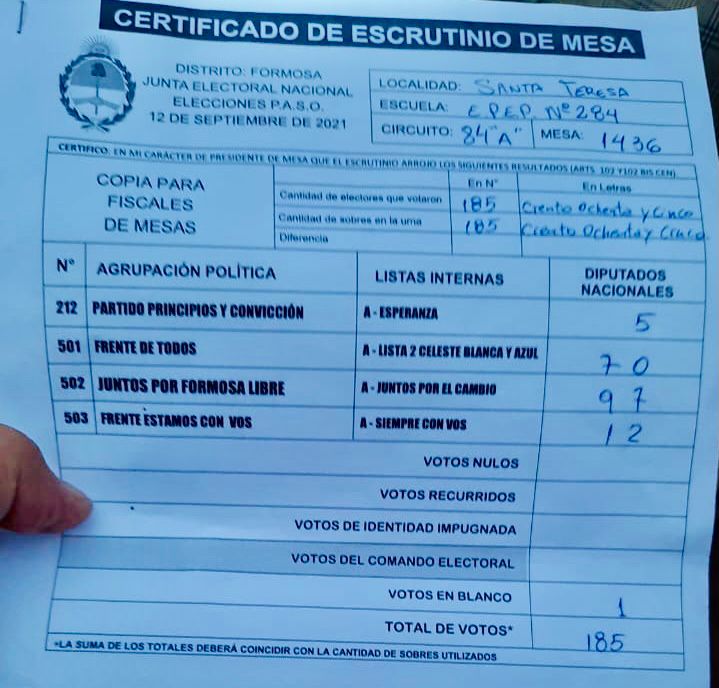 CERTIFICADO DE ESCRUTINIO DE MESA
DISTRITO: FORMOSA
JUNTA ELECTORAL NACIONAL
ELECCIONES P.A.S.O.
12 DE SEPTIEMBRE DE 2021
LOCALIDAD: SANTA TERESA
ESCUELA: E.P.E.P. Nº 284
CIRCUITO: 84"A" MESA: 1436
CERTIFICO: EN MI CARÁCTER DE PRESIDENTE DE MESA QUE EL ESCRUTINIO ARROJO LOS SIGUIENTES RESULTADOS (ARTS. 102 Y 102 BIS CEN)
COPIA PARA
FISCALES
DE MESAS
En N° En Letras
Cantidad de electores que votaron 185 Ciento Ochenta y Cinco
Cantidad de sobres en la urna 185 Ciento Ochenta y Cinco
Diferencia
N° AGRUPACIÓN POLÍTICA LISTAS INTERNAS DIPUTADOS NACIONALES
212 PARTIDO PRINCIPIOS Y CONVICCIÓN A - ESPERANZA 5
501 FRENTE DE TODOS A - LISTA 2 CELESTE BLANCA Y AZUL 70
502 JUNTOS POR FORMOSA LIBRE A - JUNTOS POR EL CAMBIO 97
503 FRENTE ESTAMOS CON VOS A - SIEMPRE CON VOS 12
VOTOS NULOS
VOTOS RECURRIDOS
VOTOS DE IDENTIDAD IMPUGNADA
VOTOS DEL COMANDO ELECTORAL
VOTOS EN BLANCO 1
TOTAL DE VOTOS* 185
*LA SUMA DE LOS TOTALES DEBERÁ COINCIDIR CON LA CANTIDAD DE SOBRES UTILIZADOS